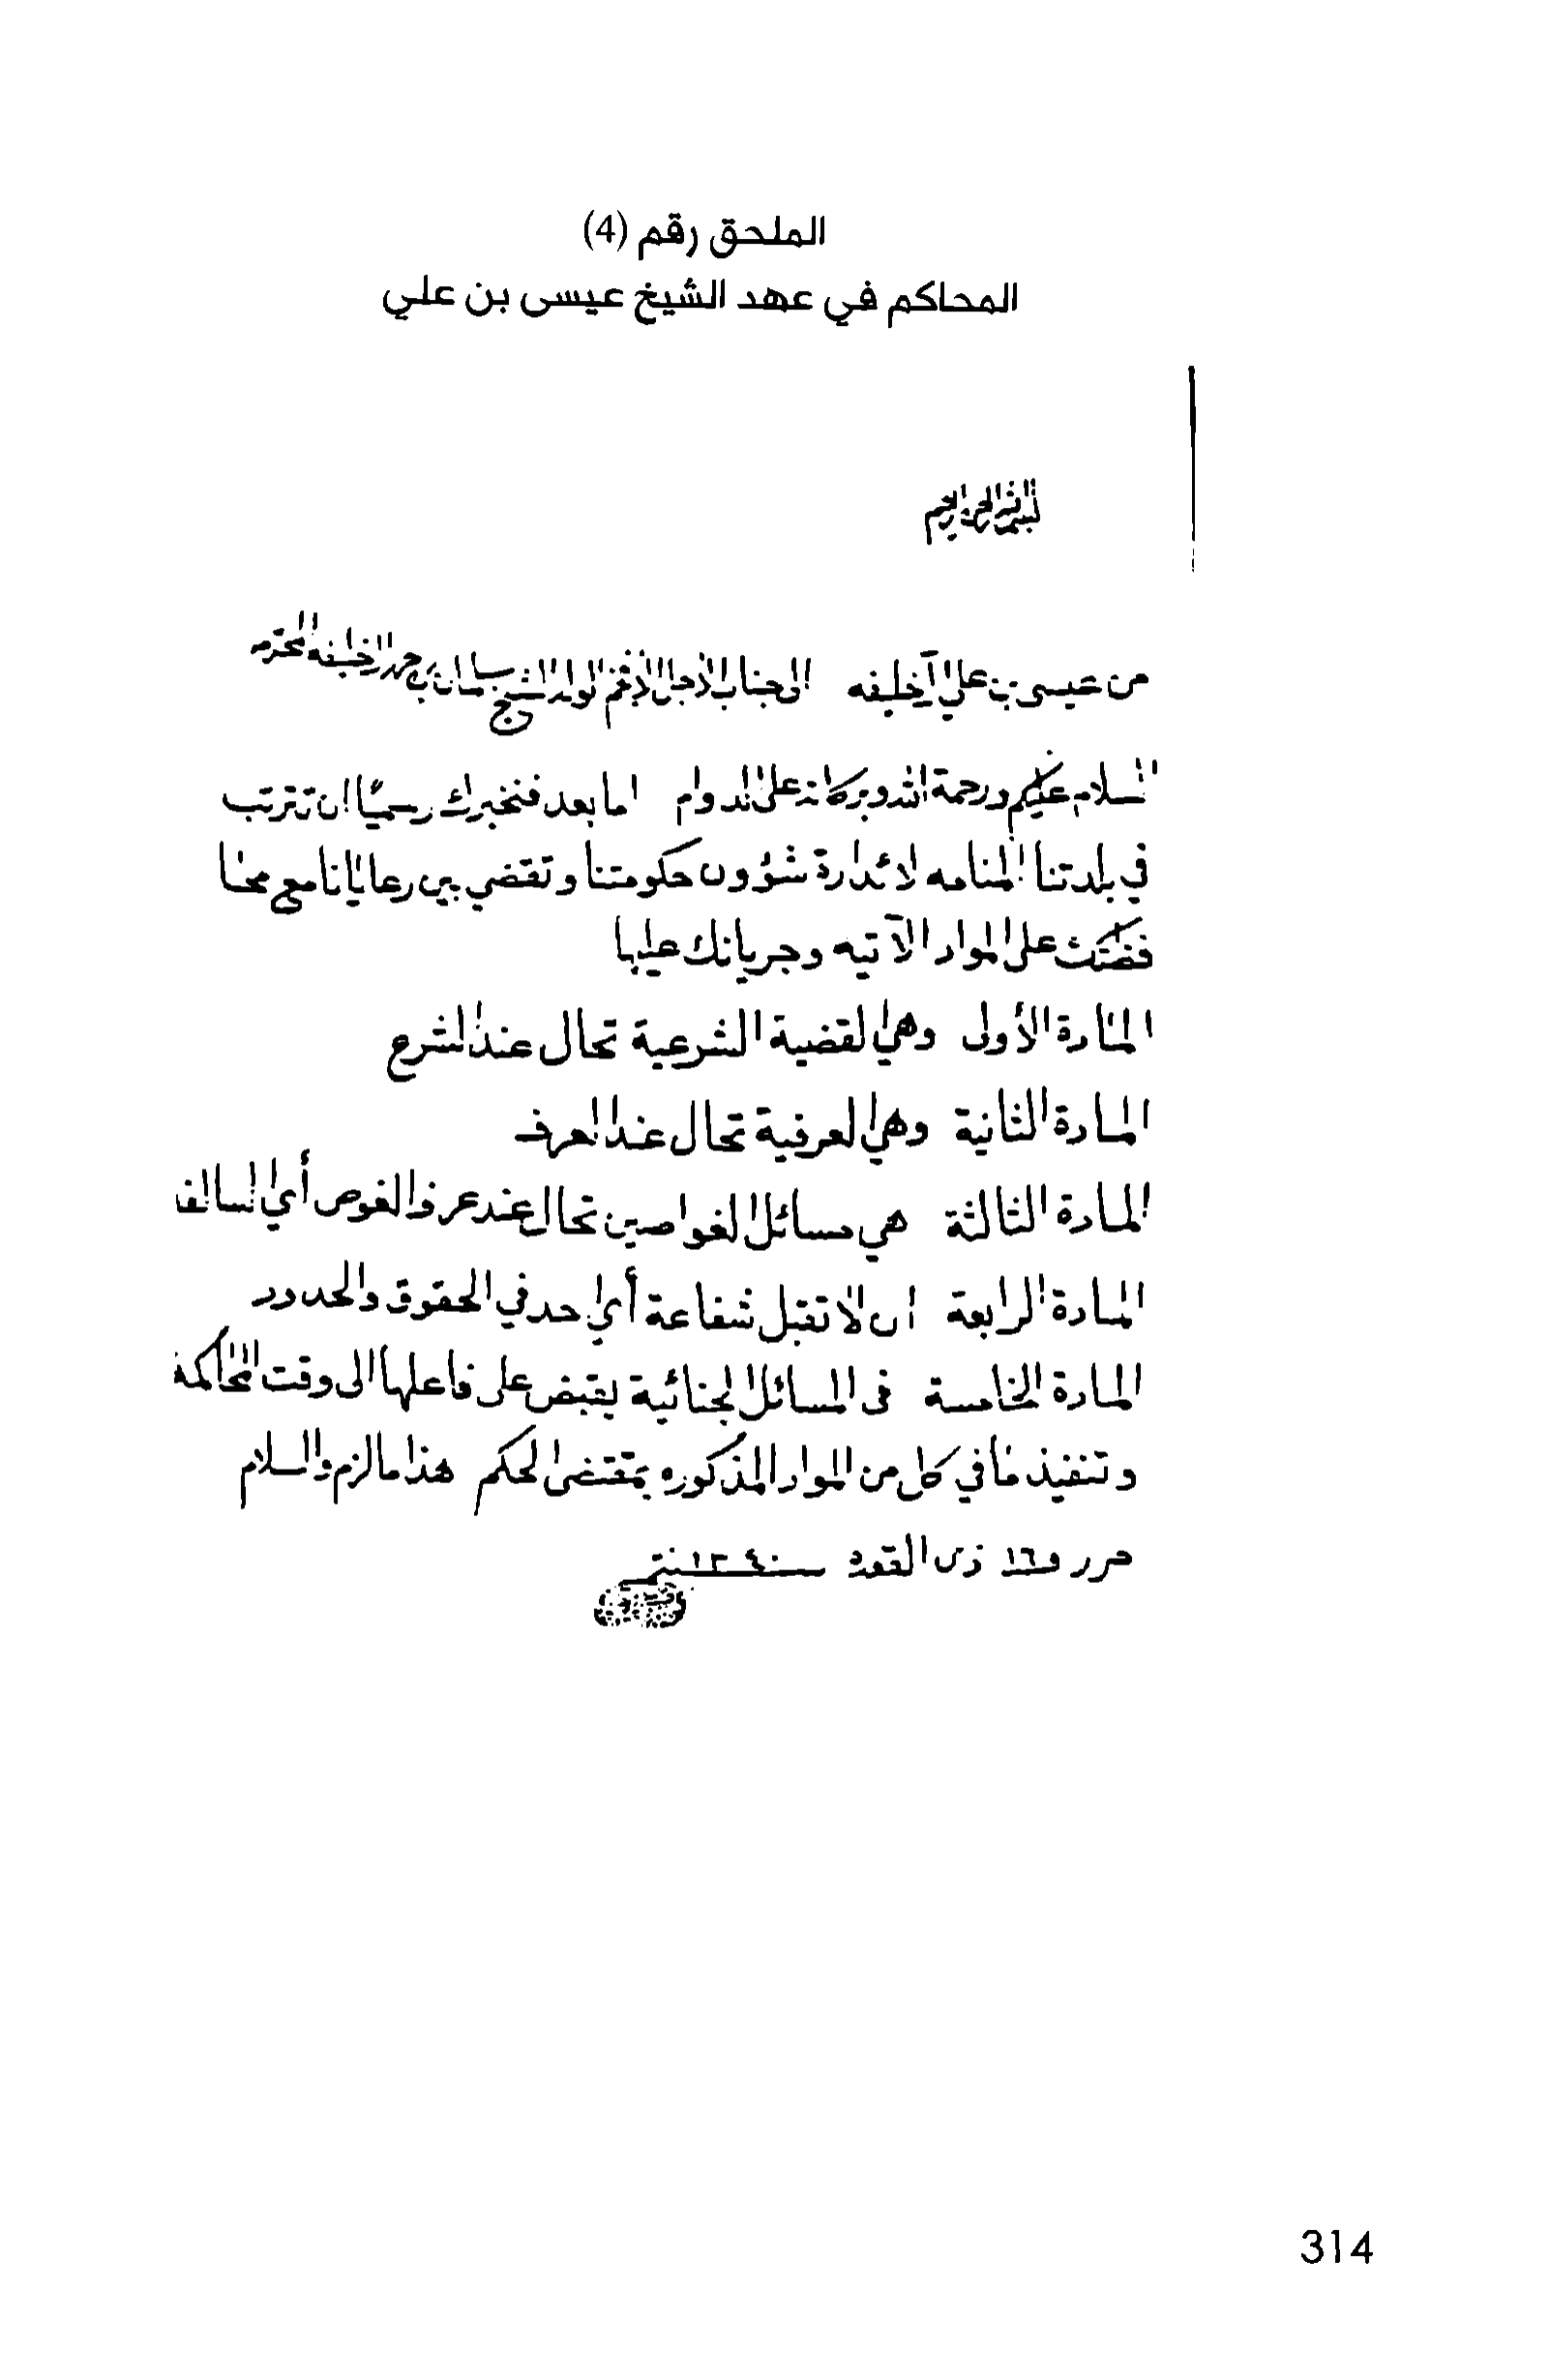 الملحق رقم (4)
المحاكم في عهد الشيخ عيسى بن علي
بسم الله الرحمن الرحيم
من عيسى بن علي آل خليفه الى جناب الأجل الأفخم الولد الشيخ سلمان بن حمد الخليفه المحترم
السلام عليكم ورحمة الله وبركاته على الدوام اما بعد فنخبرك رسميًا ان تترتب
في بلدتنا المنامه لادارة شؤون حكومتنا وتقضي بين رعايانا مع
على المواد الآتيه وجريانك عليها
المادة الأولى وهي القضية الشرعية تحال عند الشرع
المادة الثانية وهي العرفية تحال عند العرف
المادة الثالثة هي مسائل الغواصين تحال عند عرف الغوص أي السالفة
المادة الرابعة ان لا تقبل شفاعة أي احد في الحقوق والحدود
المادة الخامسة فى المسائل الجنائية يقبض على فاعلها الى وقت المحاكمة
وتنفيذ ما في كل من المواد المذكوره بمقتضى الحكم هذا ما لزم والسلام
حرر في ١٦ ذى القعدة سنة ١٣٤٠
314